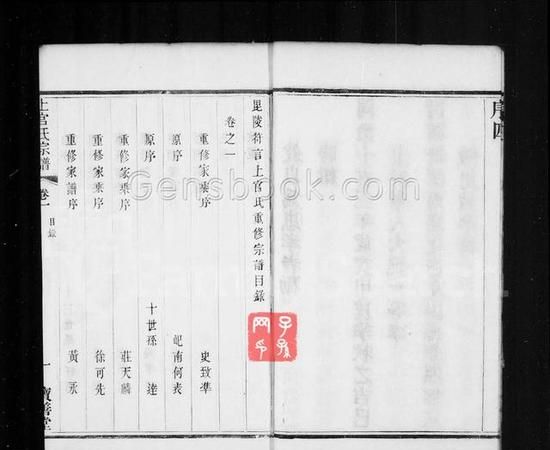 序四
毘陵符言上官氏重修宗譜目錄
卷之一
重修家乘序 史致準
原序 屺南何表
原序 十世孫 逵
重修家乘序 莊天麟
重修家乘序 徐可先
重修家譜序 黃永
上官氏宗譜 卷一 目錄 一 寶善堂
子孫
网
Gensbook.com